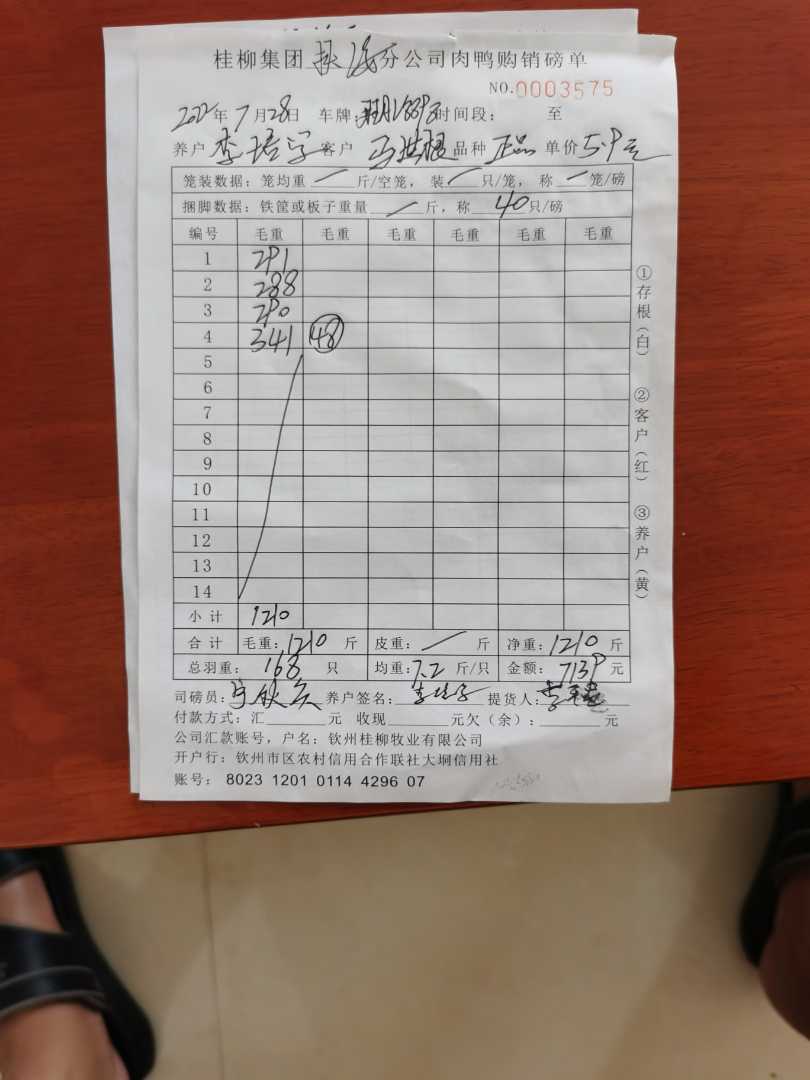 桂柳集团 分公司肉鸭购销磅单
NO.0003575
2022年7月28日 车牌: 时间段: 至
养户 李培学 客户 马世根 品种 正品 单价 5.9元
笼装数据: 笼均重 / 斤/空笼, 装 / 只/笼, 称 / 笼/磅
捆脚数据: 铁筐或板子重量 / 斤, 称 40 只/磅
编号 毛重 毛重 毛重 毛重 毛重 毛重
1 291
2 288
3 290
4 341 48
5
6
7
8
9
10
11
12
13
14
小计 1210
合计 毛重: 1210 斤 皮重: / 斤 净重: 1210 斤
总羽重: 168 只 均重: 7.2 斤/只 金额: 7139 元
司磅员: 养户签名: 李培学 提货人:
付款方式: 汇 元 收现 元欠(余): 元
公司汇款账号, 户名: 钦州桂柳牧业有限公司
开户行: 钦州市区农村信用合作联社大垌信用社
账号: 8023 1201 0114 4296 07
①存根(白)
②客户(红)
③养户(黄)